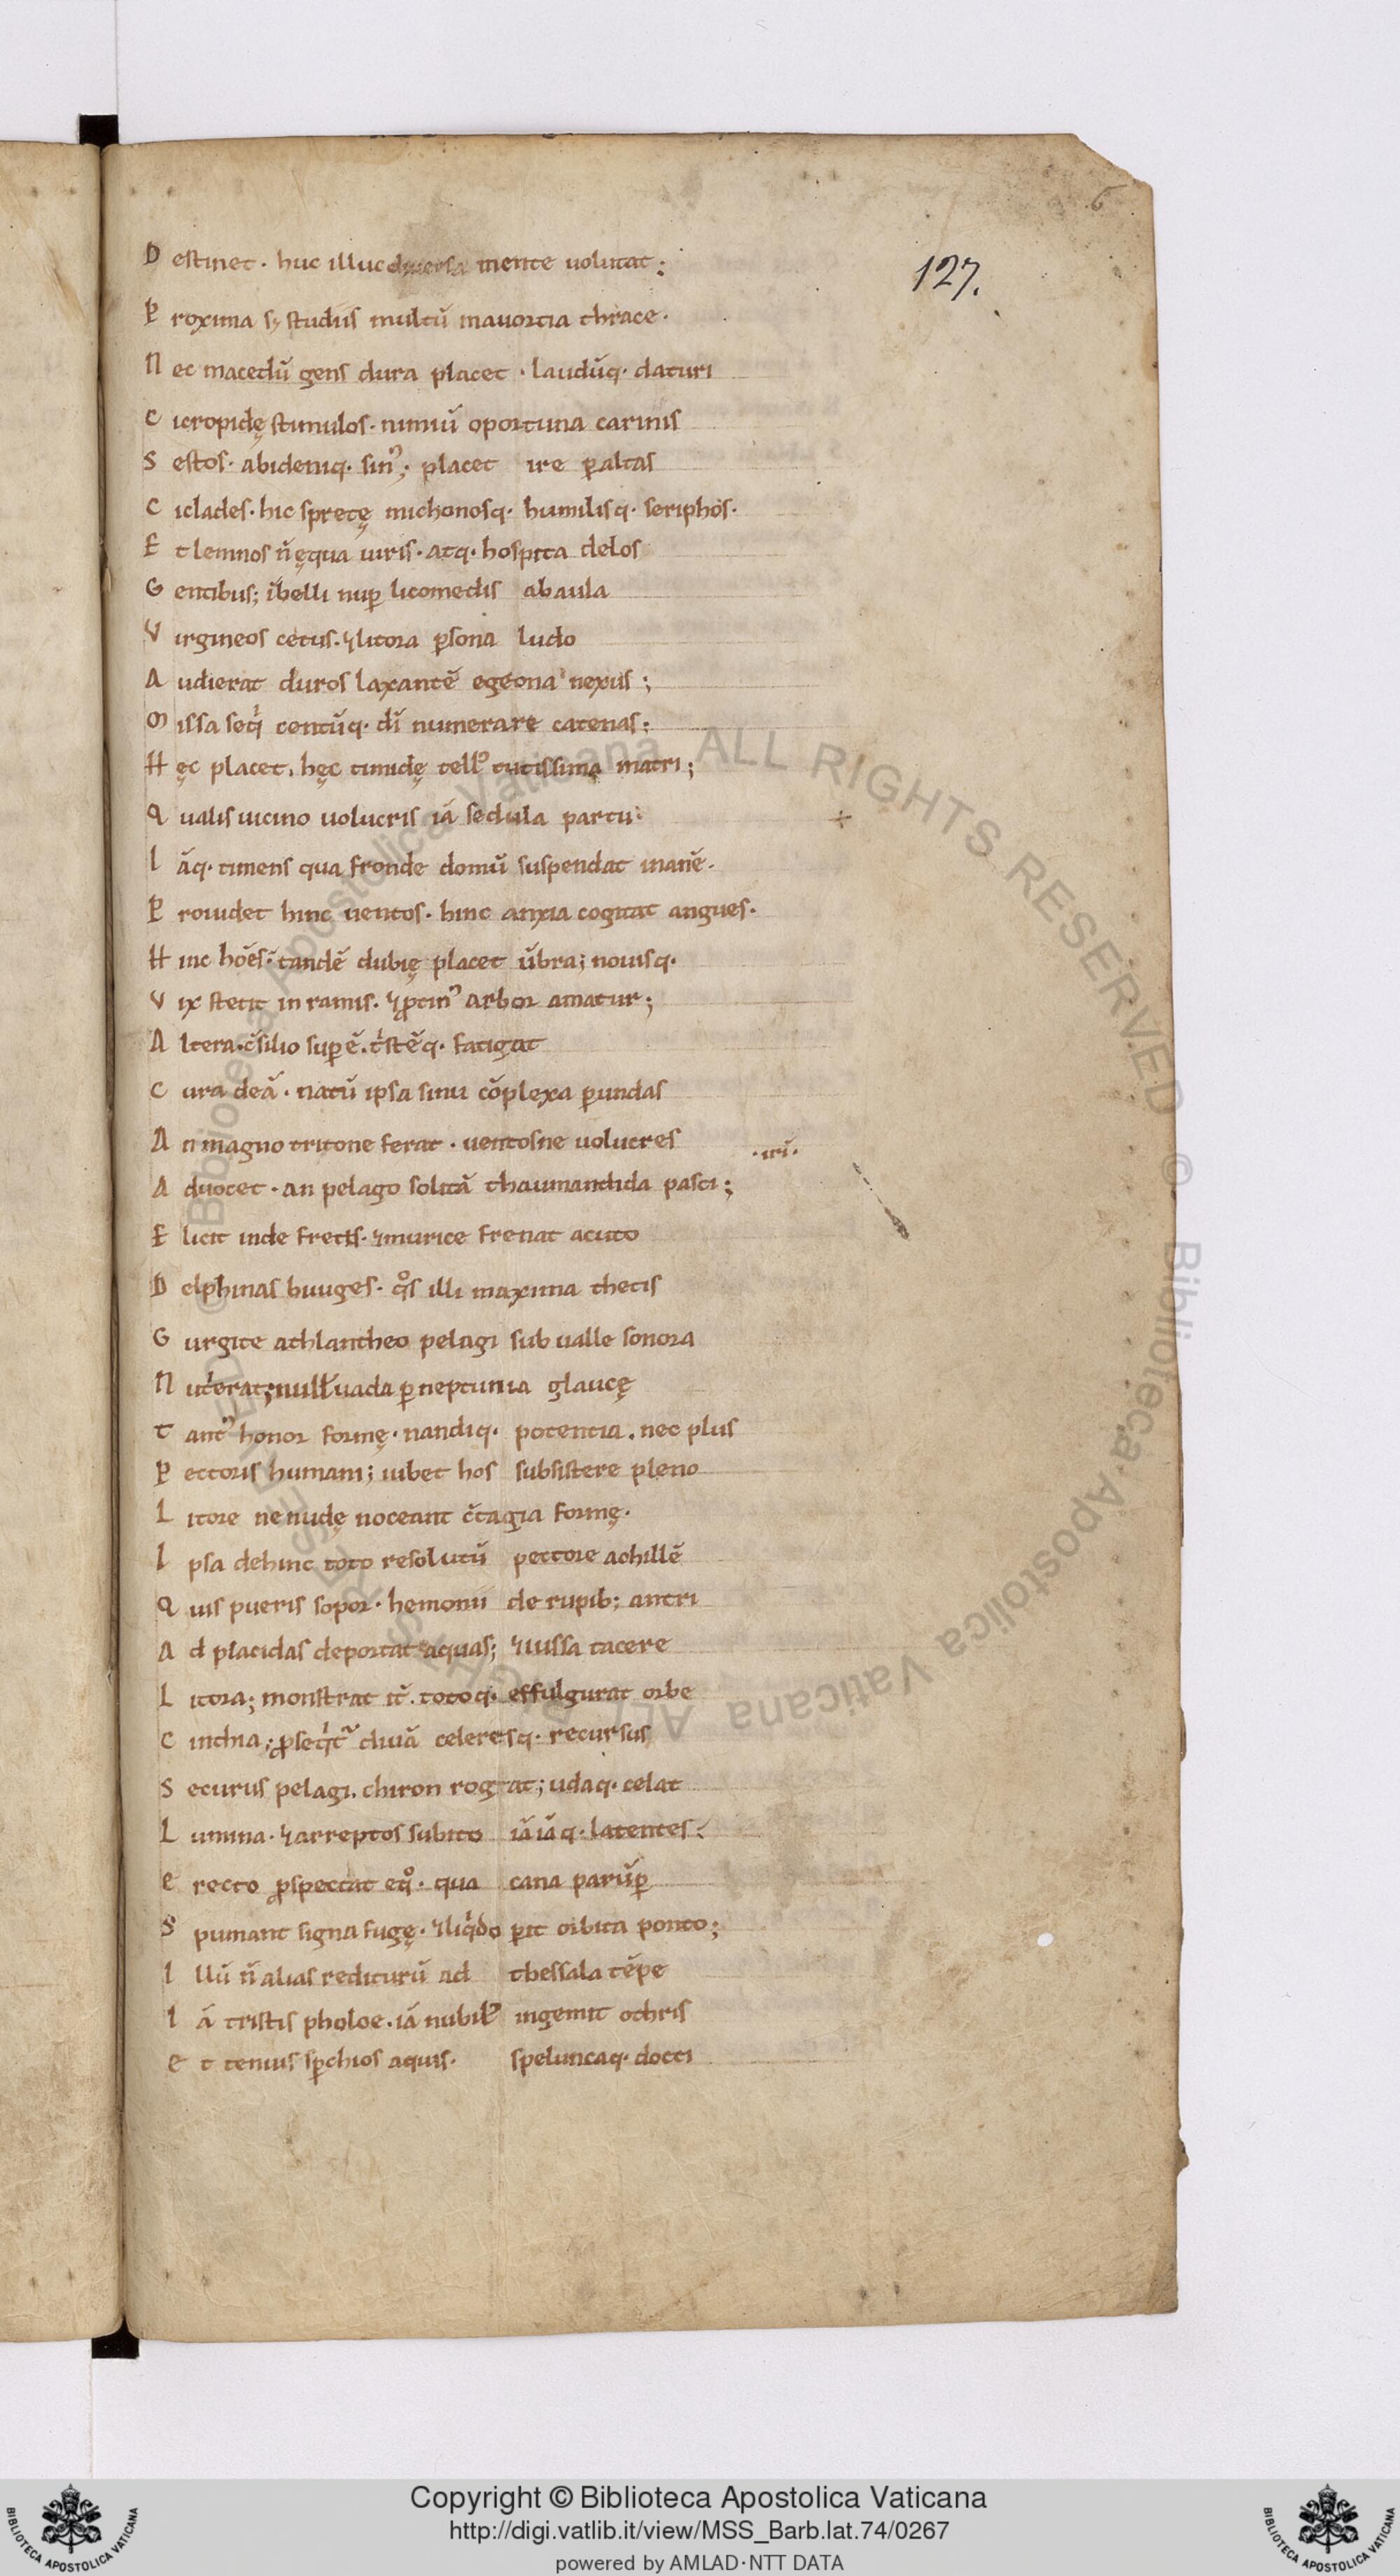 6
127.
D estinet · huc illuc diuersa mente uolutat ;
P roxima s; studiis multū mauortia thrace ·
N ec macedū gens dura placet · laudūq· daturi
C icropidę stimulos · nimiū oportuna carinis
S estos · abideniq· sin᾿; placet ire ꝑ altas
C iclades · hic spretę michonosq· humilisq· seriphos ·
E t lemnos n̄ ęqua uiris · atq· hospita delos
G entibus; ībelli nuꝑ licomedis ab aula
V irgineos cetus · ⁊ litora ꝑsona ludo
A udierat duros laxantē egeona nexus ;
M issa seqͥ centūq· dī numerare catenas ;
H ęc placet, hęc timidę tell᾿ tutissima matri ;
Q ualis uicino uolucris iā sedula partu ·
I āq· timens qua fronde domū suspendat inanē ·
P rouidet hinc uentos · hinc anxia cogitat angues ·
H inc hoēs · tandē dubię placet ūbra; nouisq·
V ix stetit in ramis · ⁊ ꝓtin᾿ arbor amatur ;
A ltera · c̄silio suꝑ ē · tͥstēq· fatigat
C ura deā · natū ipsa sinu cōplexa ꝑ undas
A n magno tritone ferat · uentosne uolucres
·irī·
A duocet · an pelago solitā thaumantida pasci ;
E licit inde fretis · ⁊ murice frenat acuto
D elphinas biuges · qͦs illi maxima thetis
G urgite athlantheo pelagi sub ualle sonora
N utͥerat; null᾿ uada ꝑ neptunia glaucę
T ant᾿ honor formę · nandiq· potentia . nec plus
P ectoris humani; iubet hos subsistere pleno
L itore ne nudę noceant c̄tagia formę ·
I psa dehinc toto resolutū pectore achillē
Q uis pueris sopor · hemonii de rupib; antri
A d placidas deportat aquas; ⁊ iussa tacere
L itora; monstrat it̄ . totoq· effulgurat orbe
C inthia; ꝓseqͥt᾿ diuā celeresq· recursus
S ecurus pelagi . chiron rogtat; udaq· celat
L umina · ⁊ arreptos subito iā iā q· latentes ·
E recto ꝓspectat eqͦ · qua cana parūꝑ
S pumant signa fugę · ⁊ liqͥdo ꝑit orbita ponto ;
I llū n̄ alias rediturū ad thessala tēpe
I ā tristis pholoe · iā nubil᾿ ingemit othris
E t tenuis sꝑchios aquis · speluncaq· docti
Copyright © Biblioteca Apostolica Vaticana
http://digi.vatlib.it/view/MSS_Barb.lat.74/0267
powered by AMLAD·NTT DATA